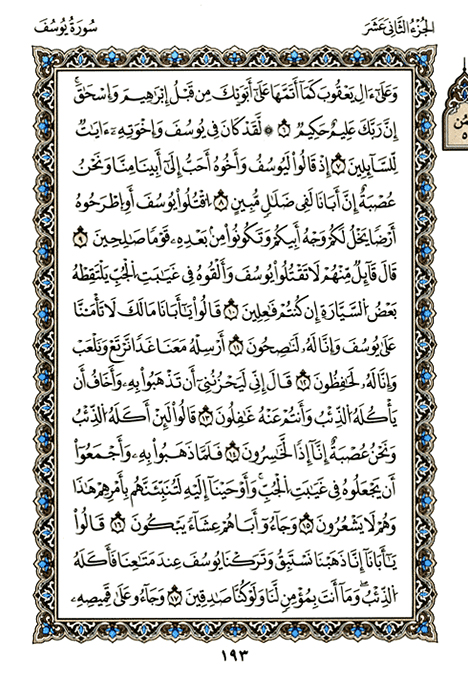 الجُزْءُ الثَّانِي عَشَرَ
سُورَةُ يُوسُفَ
وَعَلَىٰ ءَالِ يَعْقُوبَ كَمَا أَتَمَّهَا عَلَىٰ أَبَوَيْكَ مِن قَبْلُ إِبْرَٰهِيمَ وَإِسْحَٰقَ
إِنَّ رَبَّكَ عَلِيمٌ حَكِيمٌ ٦ ۞ لَّقَدْ كَانَ فِي يُوسُفَ وَإِخْوَتِهِۦ ءَايَٰتٌ
لِّلسَّآئِلِينَ ٧ إِذْ قَالُوا۟ لَيُوسُفُ وَأَخُوهُ أَحَبُّ إِلَىٰ أَبِينَا مِنَّا وَنَحْنُ
عُصْبَةٌ إِنَّ أَبَانَا لَفِي ضَلَٰلٍ مُّبِينٍ ٨ ٱقْتُلُوا۟ يُوسُفَ أَوِ ٱطْرَحُوهُ
أَرْضًا يَخْلُ لَكُمْ وَجْهُ أَبِيكُمْ وَتَكُونُوا۟ مِنۢ بَعْدِهِۦ قَوْمًا صَٰلِحِينَ ٩
قَالَ قَآئِلٌ مِّنْهُمْ لَا تَقْتُلُوا۟ يُوسُفَ وَأَلْقُوهُ فِي غَيَٰبَتِ ٱلْجُبِّ يَلْتَقِطْهُ
بَعْضُ ٱلسَّيَّارَةِ إِن كُنتُمْ فَٰعِلِينَ ١٠ قَالُوا۟ يَٰٓأَبَانَا مَا لَكَ لَا تَأْمَ۫نَّا
عَلَىٰ يُوسُفَ وَإِنَّا لَهُۥ لَنَٰصِحُونَ ١١ أَرْسِلْهُ مَعَنَا غَدًا نَرْتَعْ وَنَلْعَبْ
وَإِنَّا لَهُۥ لَحَٰفِظُونَ ١٢ قَالَ إِنِّي لَيَحْزُنُنِيٓ أَن تَذْهَبُوا۟ بِهِۦ وَأَخَافُ أَن
يَأْكُلَهُ ٱلذِّئْبُ وَأَنتُمْ عَنْهُ غَٰفِلُونَ ١٣ قَالُوا۟ لَئِنْ أَكَلَهُ ٱلذِّئْبُ
وَنَحْنُ عُصْبَةٌ إِنَّآ إِذًا لَّخَٰسِرُونَ ١٤ فَلَمَّا ذَهَبُوا۟ بِهِۦ وَأَجْمَعُوٓا۟
أَن يَجْعَلُوهُ فِي غَيَٰبَتِ ٱلْجُبِّ وَأَوْحَيْنَآ إِلَيْهِ لَتُنَبِّئَنَّهُم بِأَمْرِهِمْ هَٰذَا
وَهُمْ لَا يَشْعُرُونَ ١٥ وَجَآءُوٓ أَبَاهُمْ عِشَآءً يَبْكُونَ ١٦ قَالُوا۟
يَٰٓأَبَانَآ إِنَّا ذَهَبْنَا نَسْتَبِقُ وَتَرَكْنَا يُوسُفَ عِندَ مَتَٰعِنَا فَأَكَلَهُ
ٱلذِّئْبُ وَمَآ أَنتَ بِمُؤْمِنٍ لَّنَا وَلَوْ كُنَّا صَٰدِقِينَ ١٧ وَجَآءُو عَلَىٰ قَمِيصِهِۦ
١٩٣